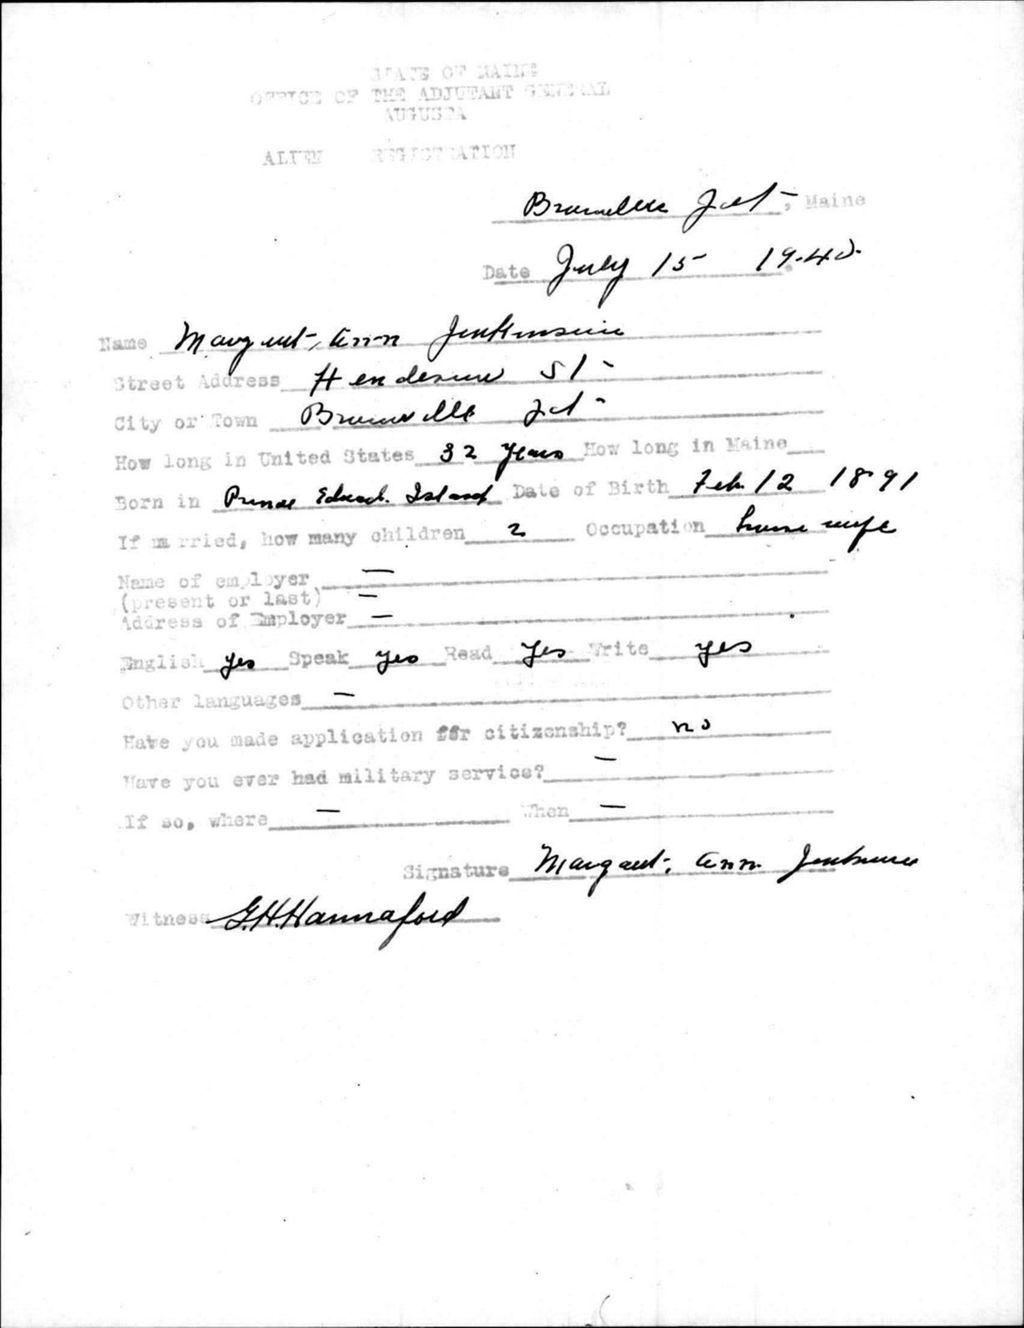 STATE OF MAINE
OFFICE OF THE ADJUTANT GENERAL
AUGUSTA
ALIEN REGISTRATION
Brownville Jct, Maine
Date July 15 1940
Name Margaret Ann Jenkinson
Street Address Henderson St
City or Town Brownville Jct
How long in United States 32 years How long in Maine
Born in Prince Edward Island Date of Birth Feb 12 1891
If married, how many children 2 Occupation house wife
Name of employer —
(present or last) —
Address of Employer —
English yes Speak yes Read yes Write yes
Other languages —
Have you made application for citizenship? no
Have you ever had military service? —
If so, where — When —
Signature Margaret Ann Jenkinson
Witness G.H. Hannaford